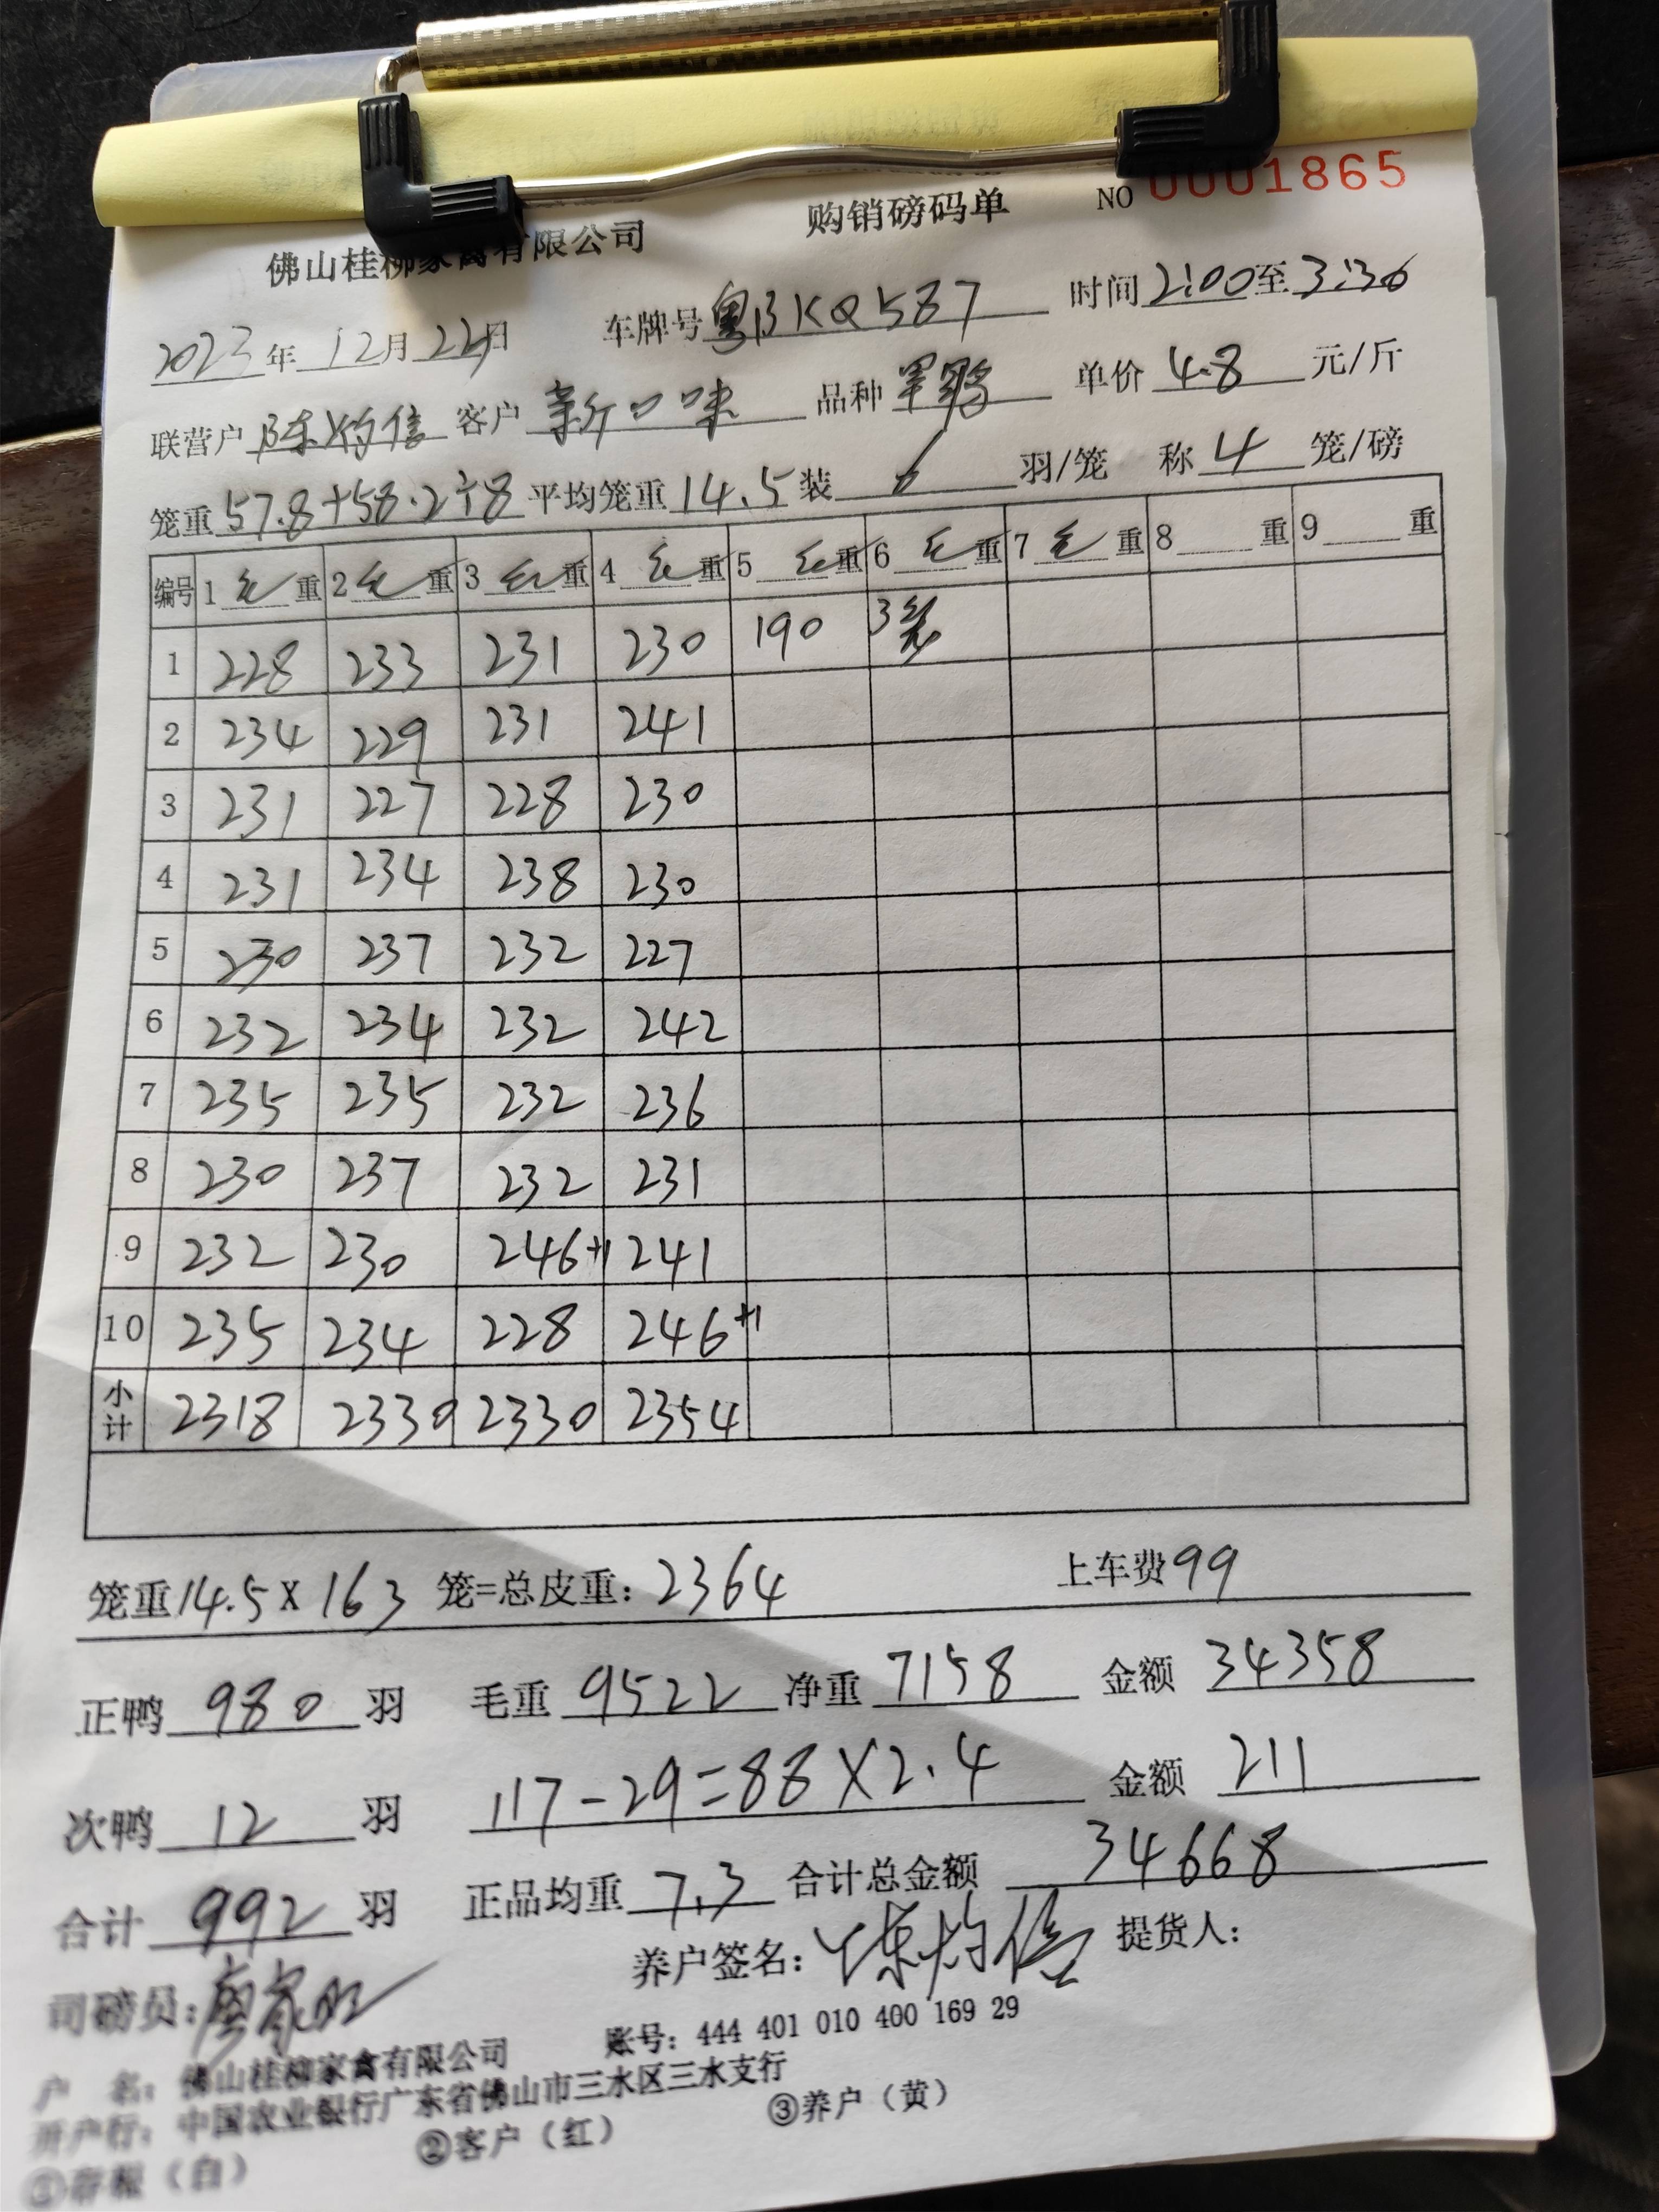 购销磅码单 NO 0001865
佛山桂柳家禽有限公司
2023年12月22日 车牌号粤BKQ587 时间2:00至3:36
联营户陈灼信 客户新口味 品种 单价4.8元/斤
笼重57.8+58.2÷8 平均笼重14.5 装6羽/笼 称4笼/磅
编号 1毛重 2毛重 3毛重 4毛重 5毛重 6毛重 7毛重 8重 9重
1 228 233 231 230 190 3笼
2 234 229 231 241
3 231 227 228 230
4 231 234 238 230
5 230 237 232 227
6 232 234 232 242
7 235 235 232 236
8 230 237 232 231
9 232 230 246+1 241
10 235 234 228 246+1
小计 2318 2330 2330 2354
笼重14.5X163笼=总皮重:2364 上车费99
正鸭980羽 毛重9522 净重7158 金额34358
次鸭12羽 117-29=88X2.4 金额211
合计992羽 正品均重7.3 合计总金额34668
司磅员: 养户签名:陈灼信 提货人:
户 名:佛山桂柳家禽有限公司 账号:444 401 010 400 169 29
开户行:中国农业银行广东省佛山市三水区三水支行
①存根（白） ②客户（红） ③养户（黄）